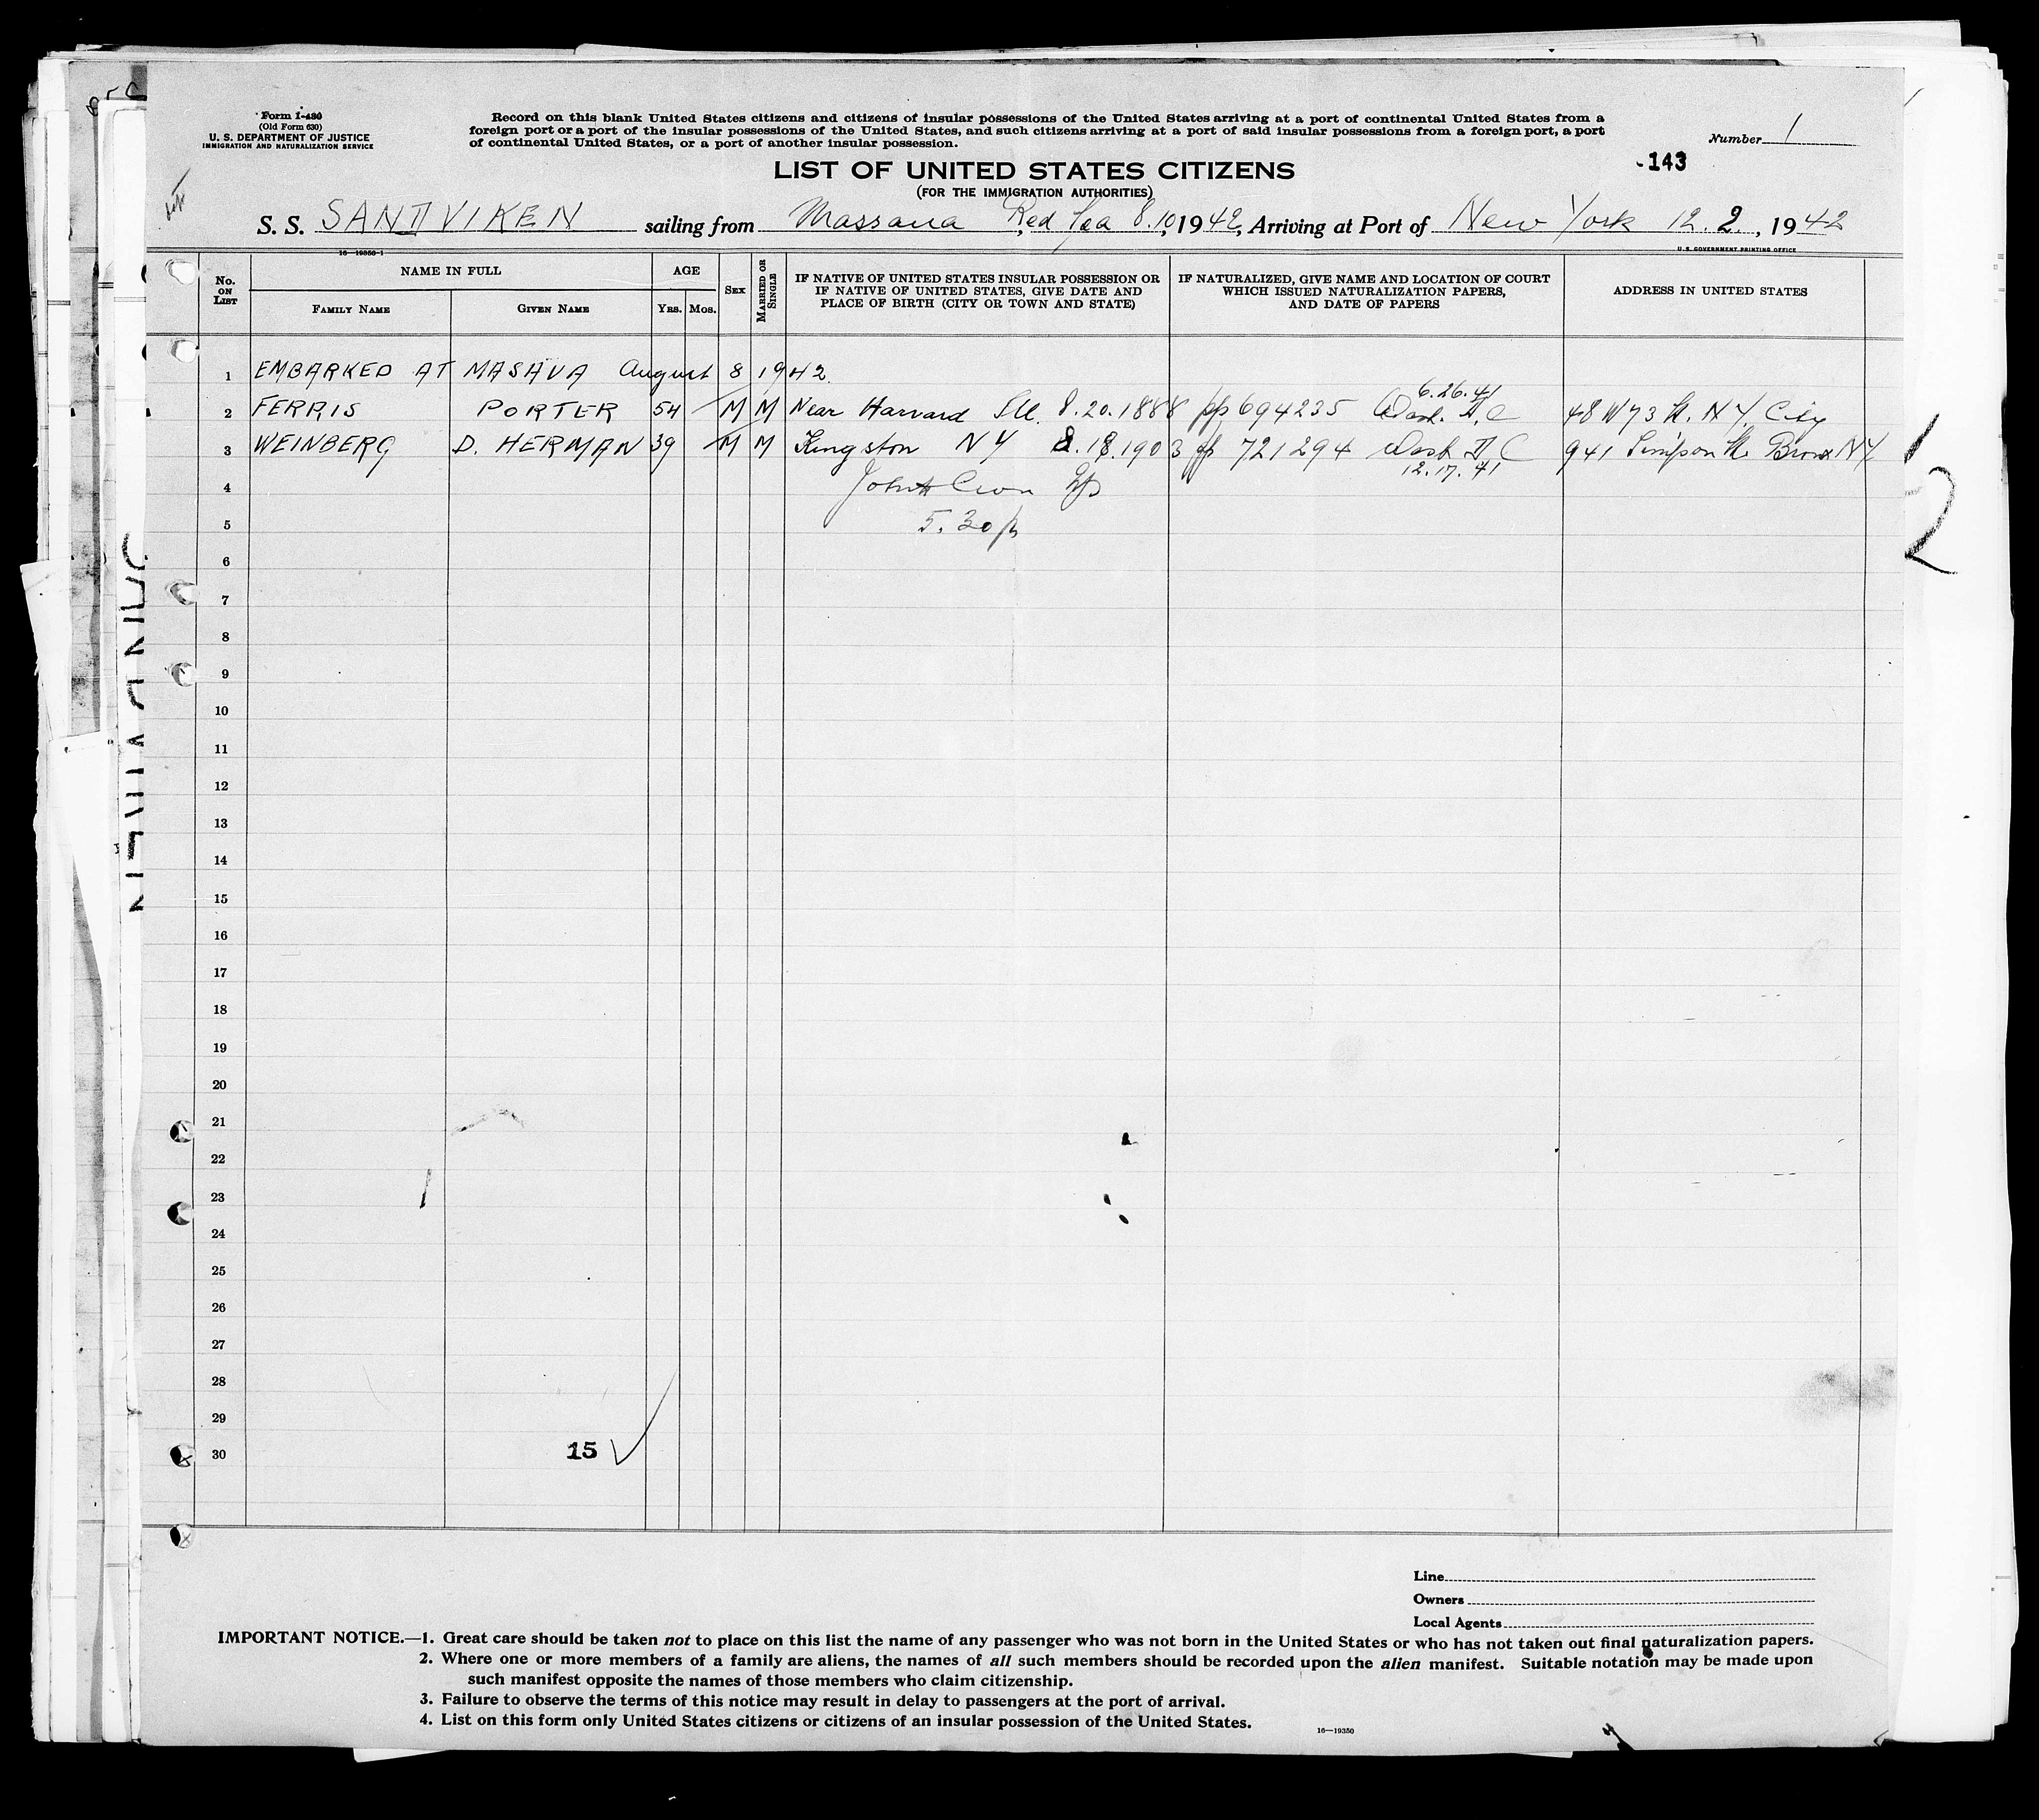 Form I-430
(Old Form 630)
U. S. DEPARTMENT OF JUSTICE
IMMIGRATION AND NATURALIZATION SERVICE
Record on this blank United States citizens and citizens of insular possessions of the United States arriving at a port of continental United States from a
foreign port or a port of the insular possessions of the United States, and such citizens arriving at a port of said insular possessions from a foreign port, a port
of continental United States, or a port of another insular possession.
Number 1
143
LIST OF UNITED STATES CITIZENS
(FOR THE IMMIGRATION AUTHORITIES)
S. S. SANDVIKEN sailing from Massaua, Red Sea 8.10, 1942, Arriving at Port of New York 12.2, 1942
16-19350-1
U. S. GOVERNMENT PRINTING OFFICE
No. ON LIST
NAME IN FULL
FAMILY NAME
GIVEN NAME
AGE
YRS. MOS.
SEX
MARRIED OR SINGLE
IF NATIVE OF UNITED STATES INSULAR POSSESSION OR
IF NATIVE OF UNITED STATES, GIVE DATE AND
PLACE OF BIRTH (CITY OR TOWN AND STATE)
IF NATURALIZED, GIVE NAME AND LOCATION OF COURT
WHICH ISSUED NATURALIZATION PAPERS,
AND DATE OF PAPERS
ADDRESS IN UNITED STATES
1 EMBARKED AT MASAVA August 8 1942.
6.26.41
2 FERRIS PORTER 54 M M Near Harvard Ill. 8.20.1888 pp 694235 Wash. D.C 48 W 73 St. N.Y. City
3 WEINBERG D. HERMAN 39 M M Kingston NY 8.18.1903 pp 721294 Wash D C 941 Simpson St. Bronx NY
12.17.41
4 John
5 5.30 p
6
7
8
9
10
11
12
13
14
15
16
17
18
19
20
21
22
23
24
25
26
27
28
29
30 15
1
2
Line
Owners
Local Agents
IMPORTANT NOTICE.—1. Great care should be taken not to place on this list the name of any passenger who was not born in the United States or who has not taken out final naturalization papers.
2. Where one or more members of a family are aliens, the names of all such members should be recorded upon the alien manifest. Suitable notation may be made upon
such manifest opposite the names of those members who claim citizenship.
3. Failure to observe the terms of this notice may result in delay to passengers at the port of arrival.
4. List on this form only United States citizens or citizens of an insular possession of the United States.
16—19350